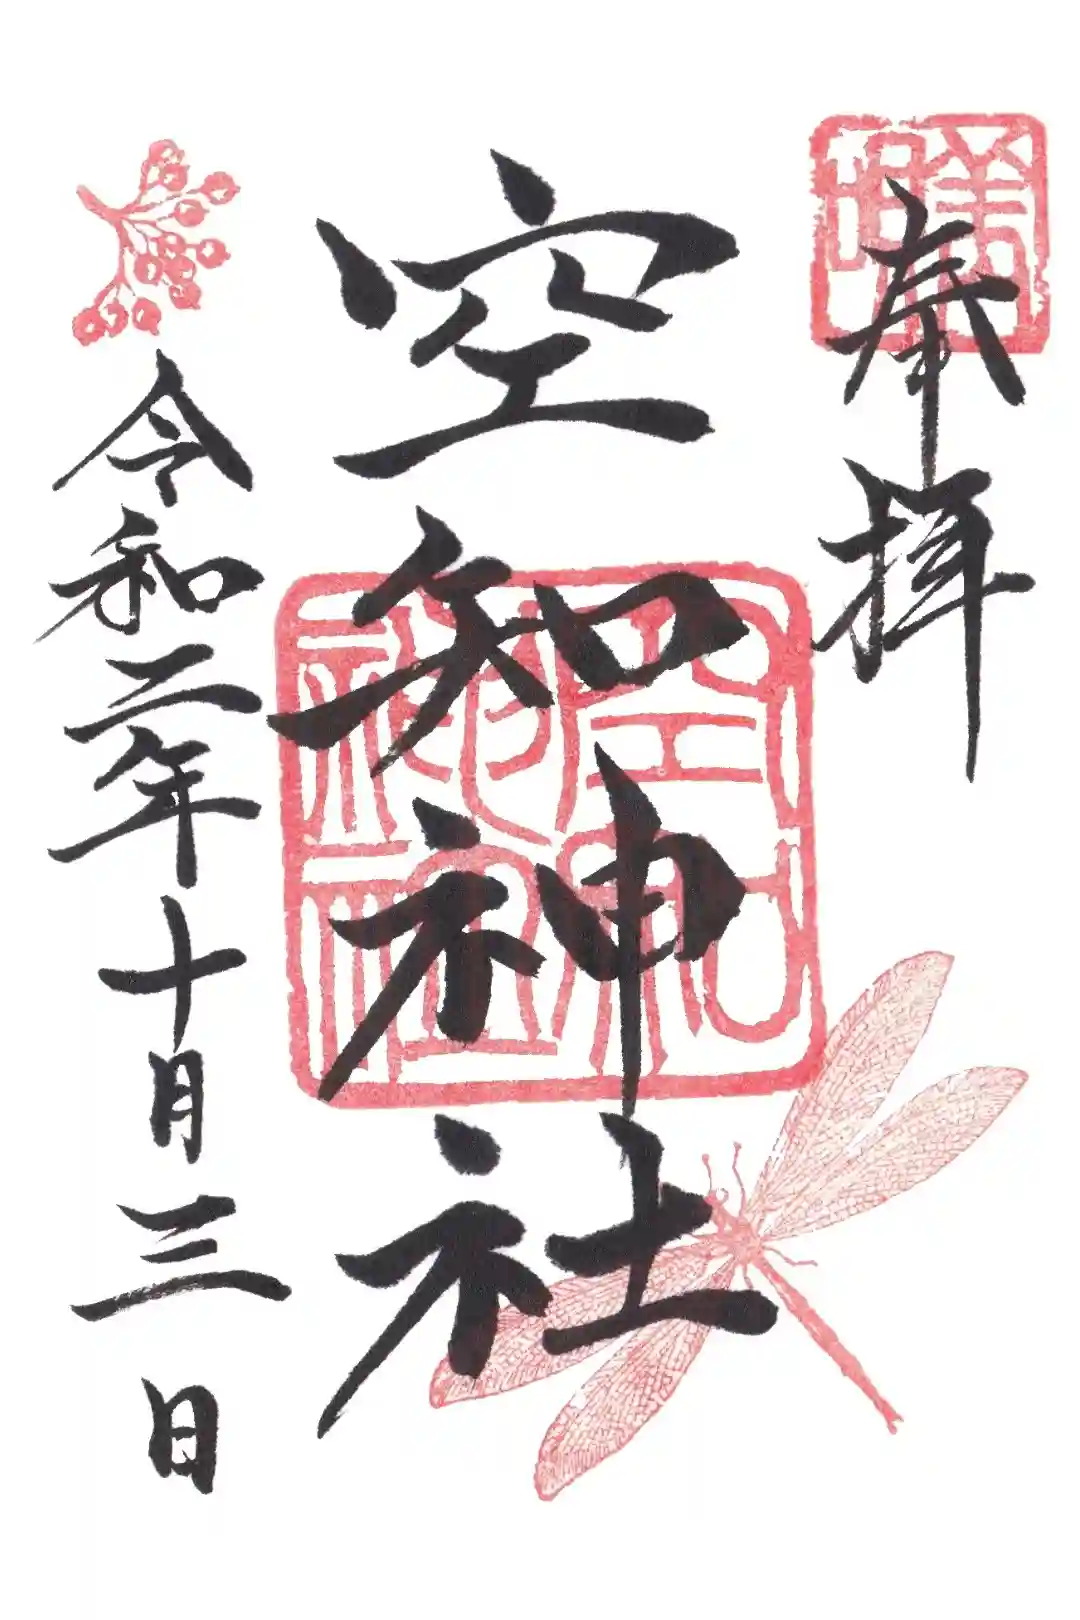 奉拝
美唄
空知神社
空知神社
令和二年十月三日